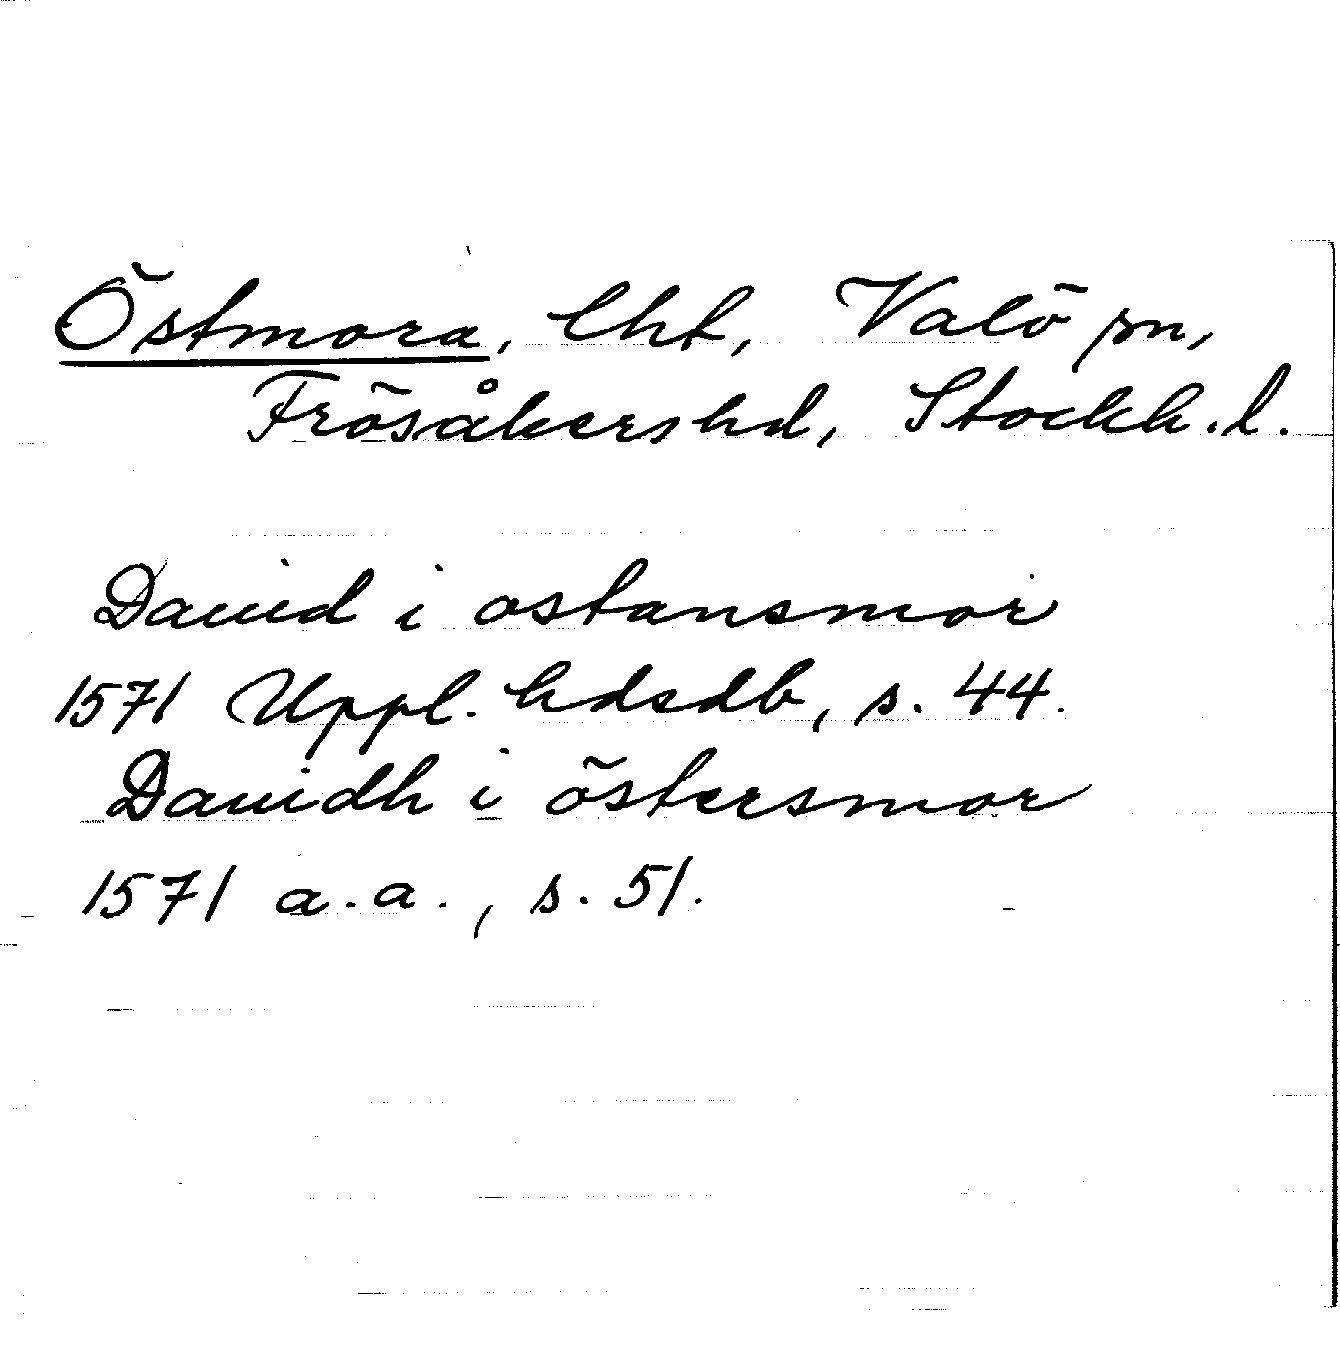 Östmora, lht, Valö sn,
Frösåkers hd, Stockh. l.
Dauid i ostansmor
1571 Uppl. hdsdb, s. 44.
Dauidh i östersmor
1571 a.a., s. 51.